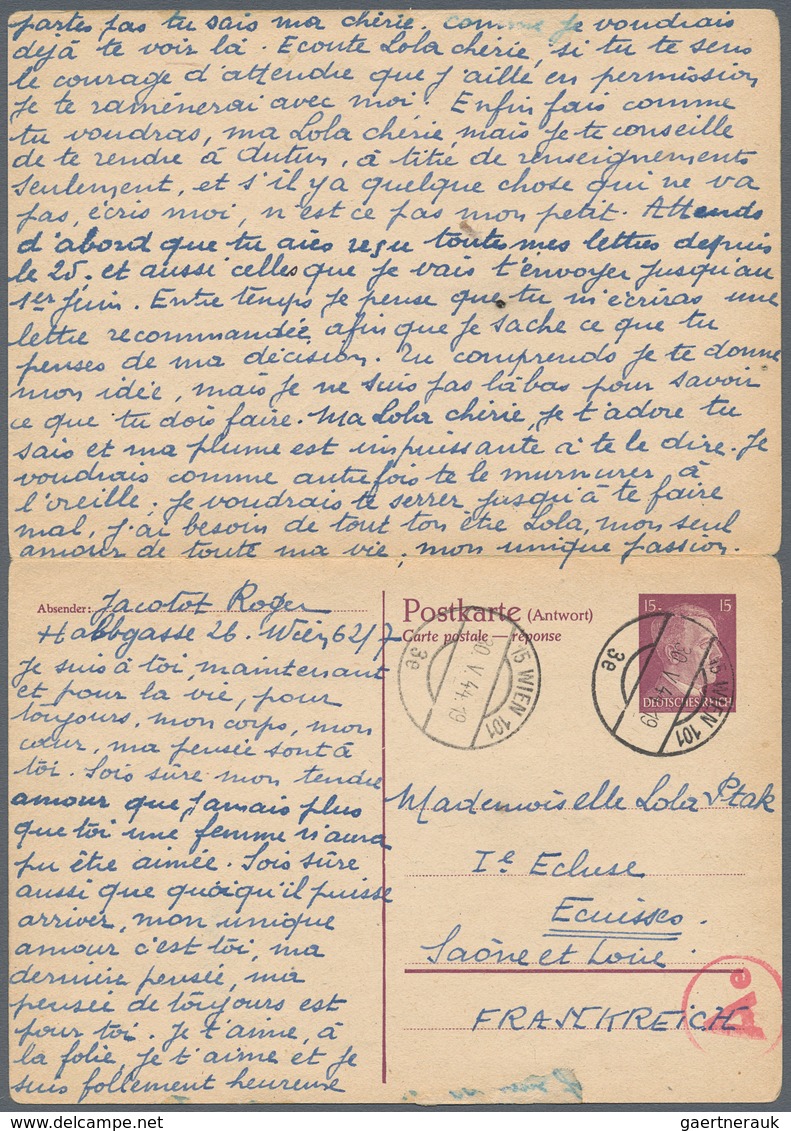 partes pas tu sais ma chérie. comme je voudrais
dejà te voir là. Ecoute Lola chérie, si tu te sens
le courage d'attendre que j'aille en permission
je te ramènerai avec moi. Enfin fais comme
tu voudras, ma Lola chérie, mais je te conseille
de te rendre à Autun, à titre de renseignements
seulement, et s'il y a quelque chose qui ne va
pas, écris moi, n'est ce pas mon petit. Attends
d'abord que tu aies reçu toutes mes lettres depuis
le 25. et aussi celles que je vais t'envoyer jusqu'au
1er Juin. Entre temps je pense que tu m'écriras une
lettre recommandée, afin que je sache ce que tu
penses de ma décision. Tu comprends je te donne
mon idée, mais je ne suis pas là bas pour savoir
ce que tu dois faire. Ma Lola chérie, je t'adore tu
sais et ma plume est impuissante à te le dire. Je
voudrais comme autrefois te le murmurer à
l'oreille. Je voudrais te serrer jusqu'à te faire
mal, j'ai besoin de tout ton être Lola, mon seul
amour de toute ma vie, mon unique passion.
Absender: Jacotot Roger
Habbgasse 26. Wien 62/7
je suis à toi, maintenant
et pour la vie, pour
toujours, mon corps, mon
cœur, ma pensée sont à
toi. Sois sûre mon tendre
amour que jamais plus
que toi une femme n'aura
pu être aimée. Sois sûre
aussi que quoiqu'il puisse
arriver, mon unique
amour c'est toi, ma
dernière pensée, ma
pensée de toujours est
pour toi. Je t'aime, à
la folie, je t'aime et je
suis follement heureuse
Postkarte (Antwort)
Carte postale — réponse
15 WIEN 101
30. V. 44. 19
3e
15 15
DEUTSCHES REICH
15 WIEN 101
30. V. 44. 19
3e
Mademoiselle Lola Ptak
Ie Ecluse
Ecuisses.
Saône et Loire
FRANKREICH
Ae
delcampe.net
gaertnerauk